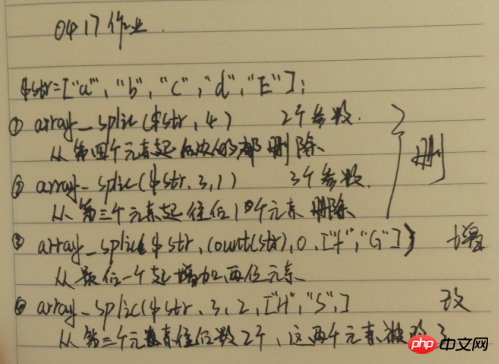 0417作业.
$str=["a","b","c","d","E"];
① array_splic($str,4) 2个参数.
从第四个元素起后的都删除
② array_splic($str.3,1) 3个参数. 删
从第三个元素起往后1个元素删除
③ array_splic($str,count(str),0,["f","G"]) 增
从最后一个起增加两位元素.
array_splic($str.3,2,["H","S",] 改
从第三个元素往后数2个,这两个元素被改了
php中文网